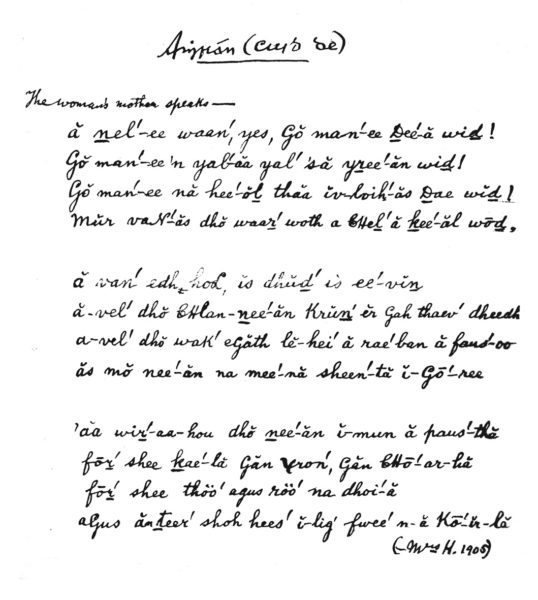 (cuid de)
The woman's mother speaks —
ă n̲el′-ee waan′, yes, Gŏ man′-ee D̲ee′-ă wid̲!
Gŏ man′-ee 'n yal′-ăa yal′ 'să yr̲ee′-ăn wid̲!
Gŏ man′-ee nă hee′-ŏl̲ thăa ĭv-hoih′-ăs D̲ae wĭd̲!
Mŭr vaN′-ăs dhŏ waar̲′ woth a CHel̲′ă k̲ee′-ăl wōd̲.
ă van′ edh, hod, is dhŭd̲′ is ee′-vĭn
ă-vel′ dhŏ CHlan-n̲ee′-ăn Krŭn̲′ ĕr Gah thaev′ dheedh
a-vel′ dhŏ wak′ eGăth lĕ-hei′ ă rae′ban ă faus′-oo
ăs mŏ nee′-ăn na mee′-nă sheen′-tă ĭ-Gō′-ree
'ăa wir̲′-aa-hou dhŏ n̲ee′-ăn ĭ-mun ă paus′-thă
fōr̲′ shee k̲ae′-lă Găn yron′, Găn CHō′-ar-hă
fōr̲′ shee thŏŏ′ agus rŏŏ′ na dhoi′-ă
aGus ăn̲teer′ shoh hees′ ĭ-lig′ fwee′ n-ă Kō′-ĭr-lă
(-Mrs H. 1905)